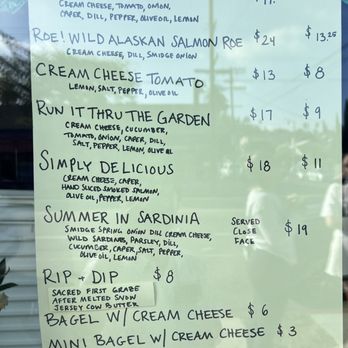 CREAM CHEESE, TOMATO, ONION,
CAPER, DILL, PEPPER, OLIVE OIL, LEMON
ROE! WILD ALASKAN SALMON ROE $24 $13.25
CREAM CHEESE, DILL, SMIDGE ONION
CREAM CHEESE TOMATO $13 $8
LEMON, SALT, PEPPER, OLIVE OIL
RUN IT THRU THE GARDEN $17 $9
CREAM CHEESE, CUCUMBER,
TOMATO, ONION, CAPER, DILL,
SALT, PEPPER, LEMON, OLIVE OIL
SIMPLY DELICIOUS $18 $11
CREAM CHEESE, CAPER,
HAND SLICED SMOKED SALMON,
OLIVE OIL, PEPPER, LEMON
SUMMER IN SARDINIA SERVED CLOSE FACE $19
SMIDGE SPRING ONION DILL CREAM CHEESE,
WILD SARDINES, PARSLEY, DILL,
CUCUMBER, CAPER, SALT, PEPPER,
OLIVE OIL, LEMON
RIP + DIP $8
SACRED FIRST GRAZE
AFTER MELTED SNOW
JERSEY COW BUTTER
BAGEL W/ CREAM CHEESE $6
MINI BAGEL W/ CREAM CHEESE $3